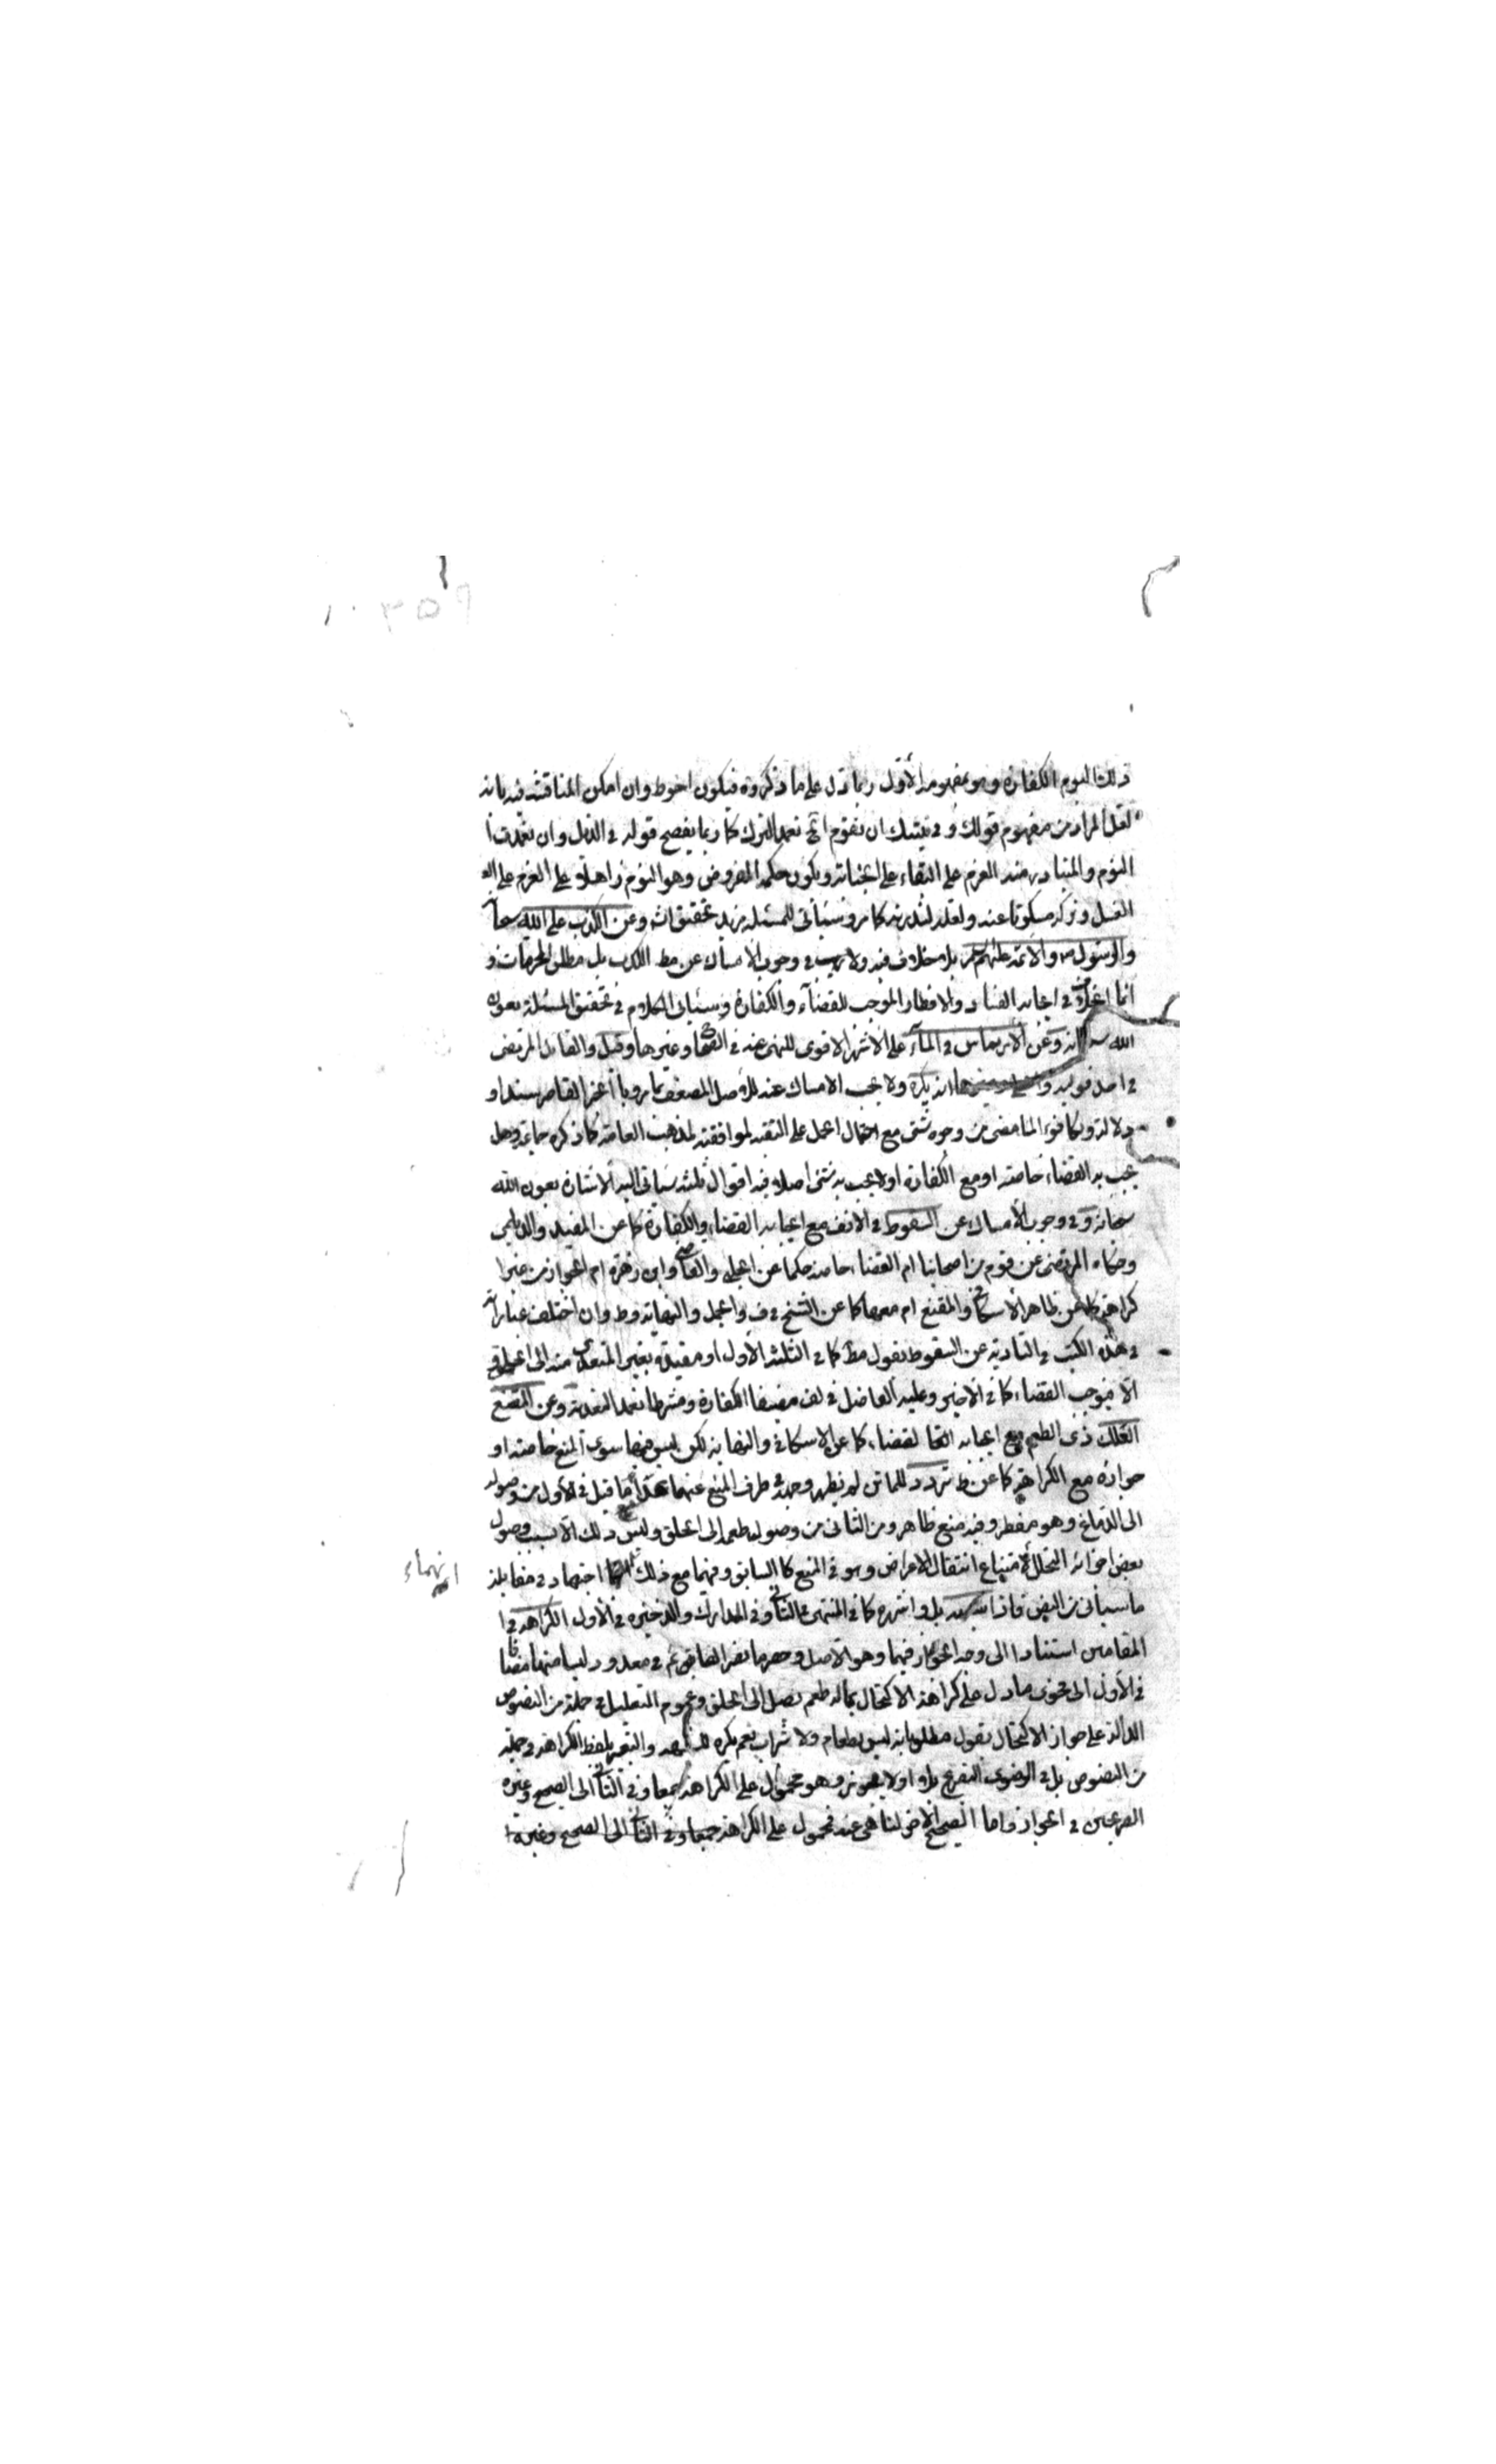 ذلك اليوم الكفارة وهو بمفهومه الأول ربما دل على ما ذكروه فيكون احوط وان امكن المناقشة فيه بانه
لعل المراد من مفهوم قولك وفي نيتك ان تقوم اي تعمد الترك كما ربما يفصح قوله في الذيل وان تعمدت ا
النوم والمتبادر منه العزم على البقاء على الجنابة ويكون حكم المفروض وهو النوم ذاهلا على العزم على
الغسل وتركه مسكوتا عنه ولعله لندرته كما مر وسيأتي للمسئلة مزيد تحقيق وعن الكذب على الله سبحا
والرسول ص والائمة عليهم بلا خلاف فيه ولا ريب في وجوب الامساك عن مط الكذب بل مطلق المحرمات و
انما الخلاف في ايجابه الفساد والافطار الموجب للقضاء والكفارة وسيأتي الكلام في تحقيق المسئلة بعون
الله سبحانه وعن الارتماس في الماء على الاشهر الاقوى للنهي عنه في الصحاح وغيرها وقيل والقائل المرتضى
في احد قوليه انه يكره ولا يجب الامساك عنه للاصل المضعف بما مر وبالخبر القاصر سندا و
دلالة ومكافوة لما مضى من وجوه شتى مع احتمال الحمل على التقية لموافقته لمذهب العامة كما ذكره جماعة وهل
يجب به القضاء خاصة او مع الكفارة او لا يجب به شئ اصلا فيه اقوال ثلثة سيأتي اليه الاشارة بعون الله
سبحانه وفي وجوب الامساك عن السعوط في الانف مع ايجابه القضاء والكفارة كما عن المفيد والديلمي
وحكاه المرتضى عن قوم من اصحابنا ام القضاء خاصة كما عن الحلبي والقاضي وابن زهرة ام الجواز من غير ا
كراهة كما عن ظاهر الاسكافي والمقنع ام معها كما عن الشيخ في ف والجمل والنهاية وط وان اختلف عباراته
في هذه الكتب في التادية عن السعوط بقول مط كما في الثلثة الاول او مقيدة بغير المتعدي منه الى الحلق و
الا فيوجب القضاء كما في الاخير وعليه الفاضل في لف مضيفا الكفارة ومشترطا تعمد التعدية وعن المضغ
العلك ذي الطعم مع ايجابه القضاء كما عن الاسكافي والنهاية لكن ليس فيها سوى المنع خاصة او
جوازه مع الكراهة كما عن ط تردد للماتن لم يظهر وجهه في طرف المنع عنهما عدا ما قيل في الاول من وصوله
الى الدماغ وهو مفطر وفيه منع ظاهر ومن الثاني من وصول طعمه الى الحلق وليس ذلك الا بسبب وصول
بعض اجزائه المتحللة لامتناع انتقال الاعراض وهو في المنع كالسابق وفيهما مع ذلك انهما اجتهاد في مقابلة
ما سيأتي من النص فاذا بل واشهره كما في المنتهى في الثاني وفي المدارك والذخيرة في الاول الكراهة في ا
المقامين استنادا الى وجه الجواز فيهما وهو الاصل وحصر ما يضر الصائم في معدود ليسا منها مضافا
في الاول الى فحوى ما دل على كراهة الاكتحال بماله طعم يصل الى الحلق وعموم التعليل في جملة من النصوص
الدالة على جواز الاكتحال بقول مطلق بانه ليس بطعام ولا شراب نعم يكره والتعبير بلفظ الكراهة في جملة
من النصوص بل في الرضوي التصريح بلو اولا يجوز وهو محمول على الكراهة جمعا وفي الثاني الى الصحيح وغيره
الصريحين في الجواز واما الصحيح الاخر لنا هي عنه فمحمول على الكراهة جمعا وفي الثاني الى الصحيح وغيره ا
انهماء